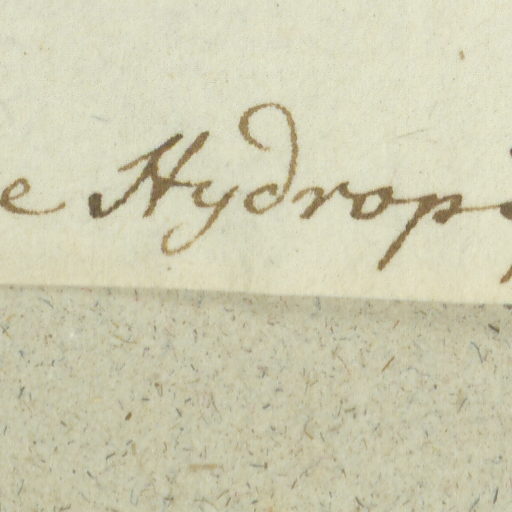 e Hydrop